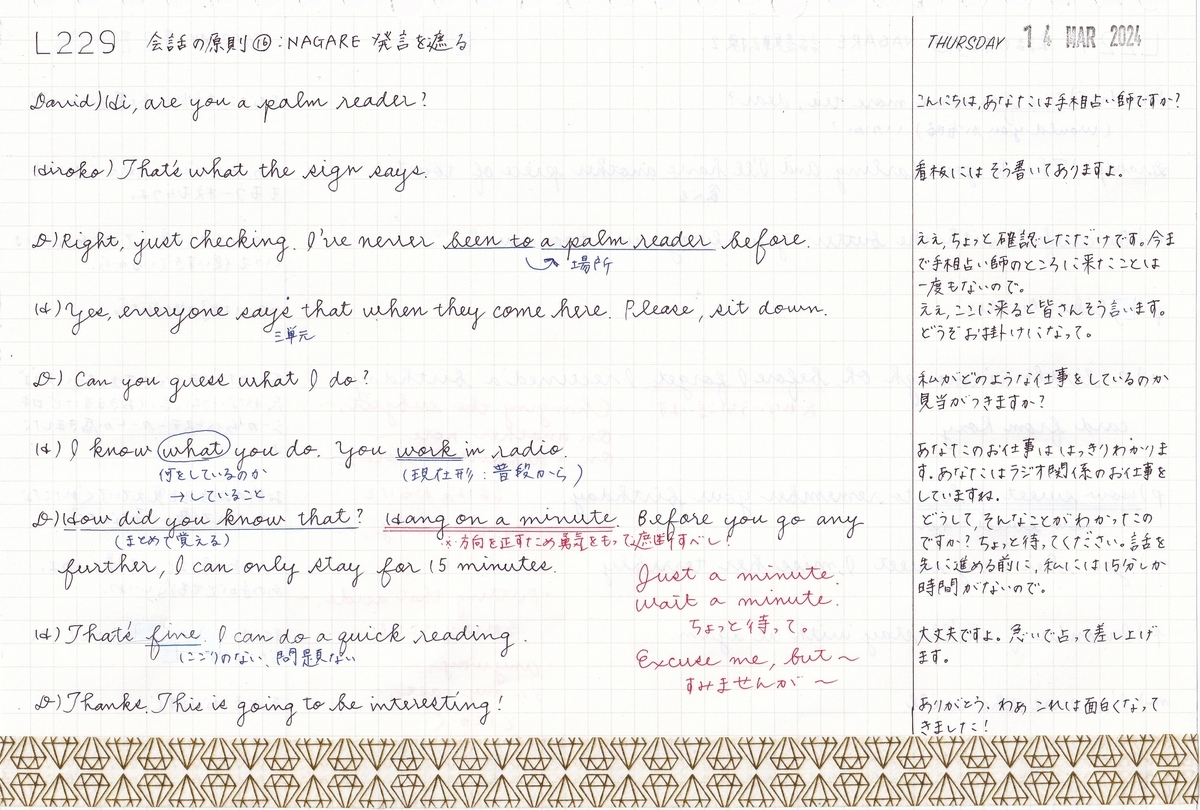 L229 会話の原則⑯:NAGARE 発言を遮る
THURSDAY 14 MAR 2024
David) Hi, are you a palm reader?
こんにちは,あなたは手相占い師ですか?
Hiroko) That's what the sign says.
看板にはそう書いてありますよ。
D) Right, just checking. I've never been to a palm reader before.
場所
ええ,ちょっと確認しただけです。今ま
で手相占い師のところに来たことは
一度もないので。
H) Yes, everyone says that when they come here. Please, sit down.
三単元
ええ,ここに来ると皆さんそう言います。
どうぞお掛けになって。
D) Can you guess what I do?
私がどのような仕事をしているのか
見当がつきますか?
H) I know what you do. You work in radio.
何をしているのか
→していること
(現在形:普段から)
あなたのお仕事ははっきりわかりま
す。あなたはラジオ関係のお仕事を
していますね。
D) How did you know that? Hang on a minute. Before you go any
(まとめて覚える)
※方向を正すため勇気をもって遮断すべし!
further, I can only stay for 15 minutes.
どうして,そんなことがわかったの
ですか?ちょっと待ってください。話を
先に進める前に,私には15分しか
時間がないので。
Just a minute.
Wait a minute.
ちょっと待って。
Excuse me, but ~
すみませんが ~
H) That's fine. I can do a quick reading.
にごりのない、問題ない
大丈夫ですよ。急いで占って差し上げ
ます。
D) Thanks. This is going to be interesting!
ありがとう.わぁ これは面白くなって
きました!